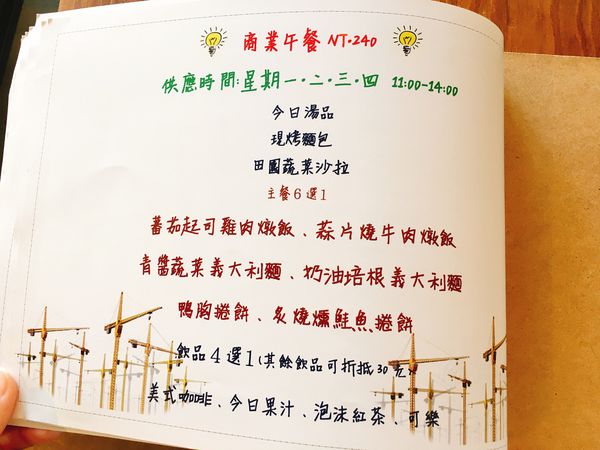 商業午餐 NT.240
供應時間:星期一.二.三.四 11:00-14:00
今日湯品
現烤麵包
田園蔬菜沙拉
主餐6選1
蕃茄起司雞肉燉飯、蒜片燒牛肉燉飯
青醬蔬菜義大利麵、奶油培根義大利麵
鴨胸捲餅、炙燒燻鮭魚捲餅
飲品4選1(其餘飲品可折抵30元)
美式咖啡、今日果汁、泡沫紅茶、可樂